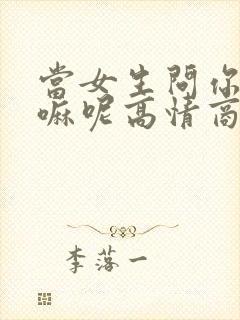 當女生問你
嘛呢高情商
李落一